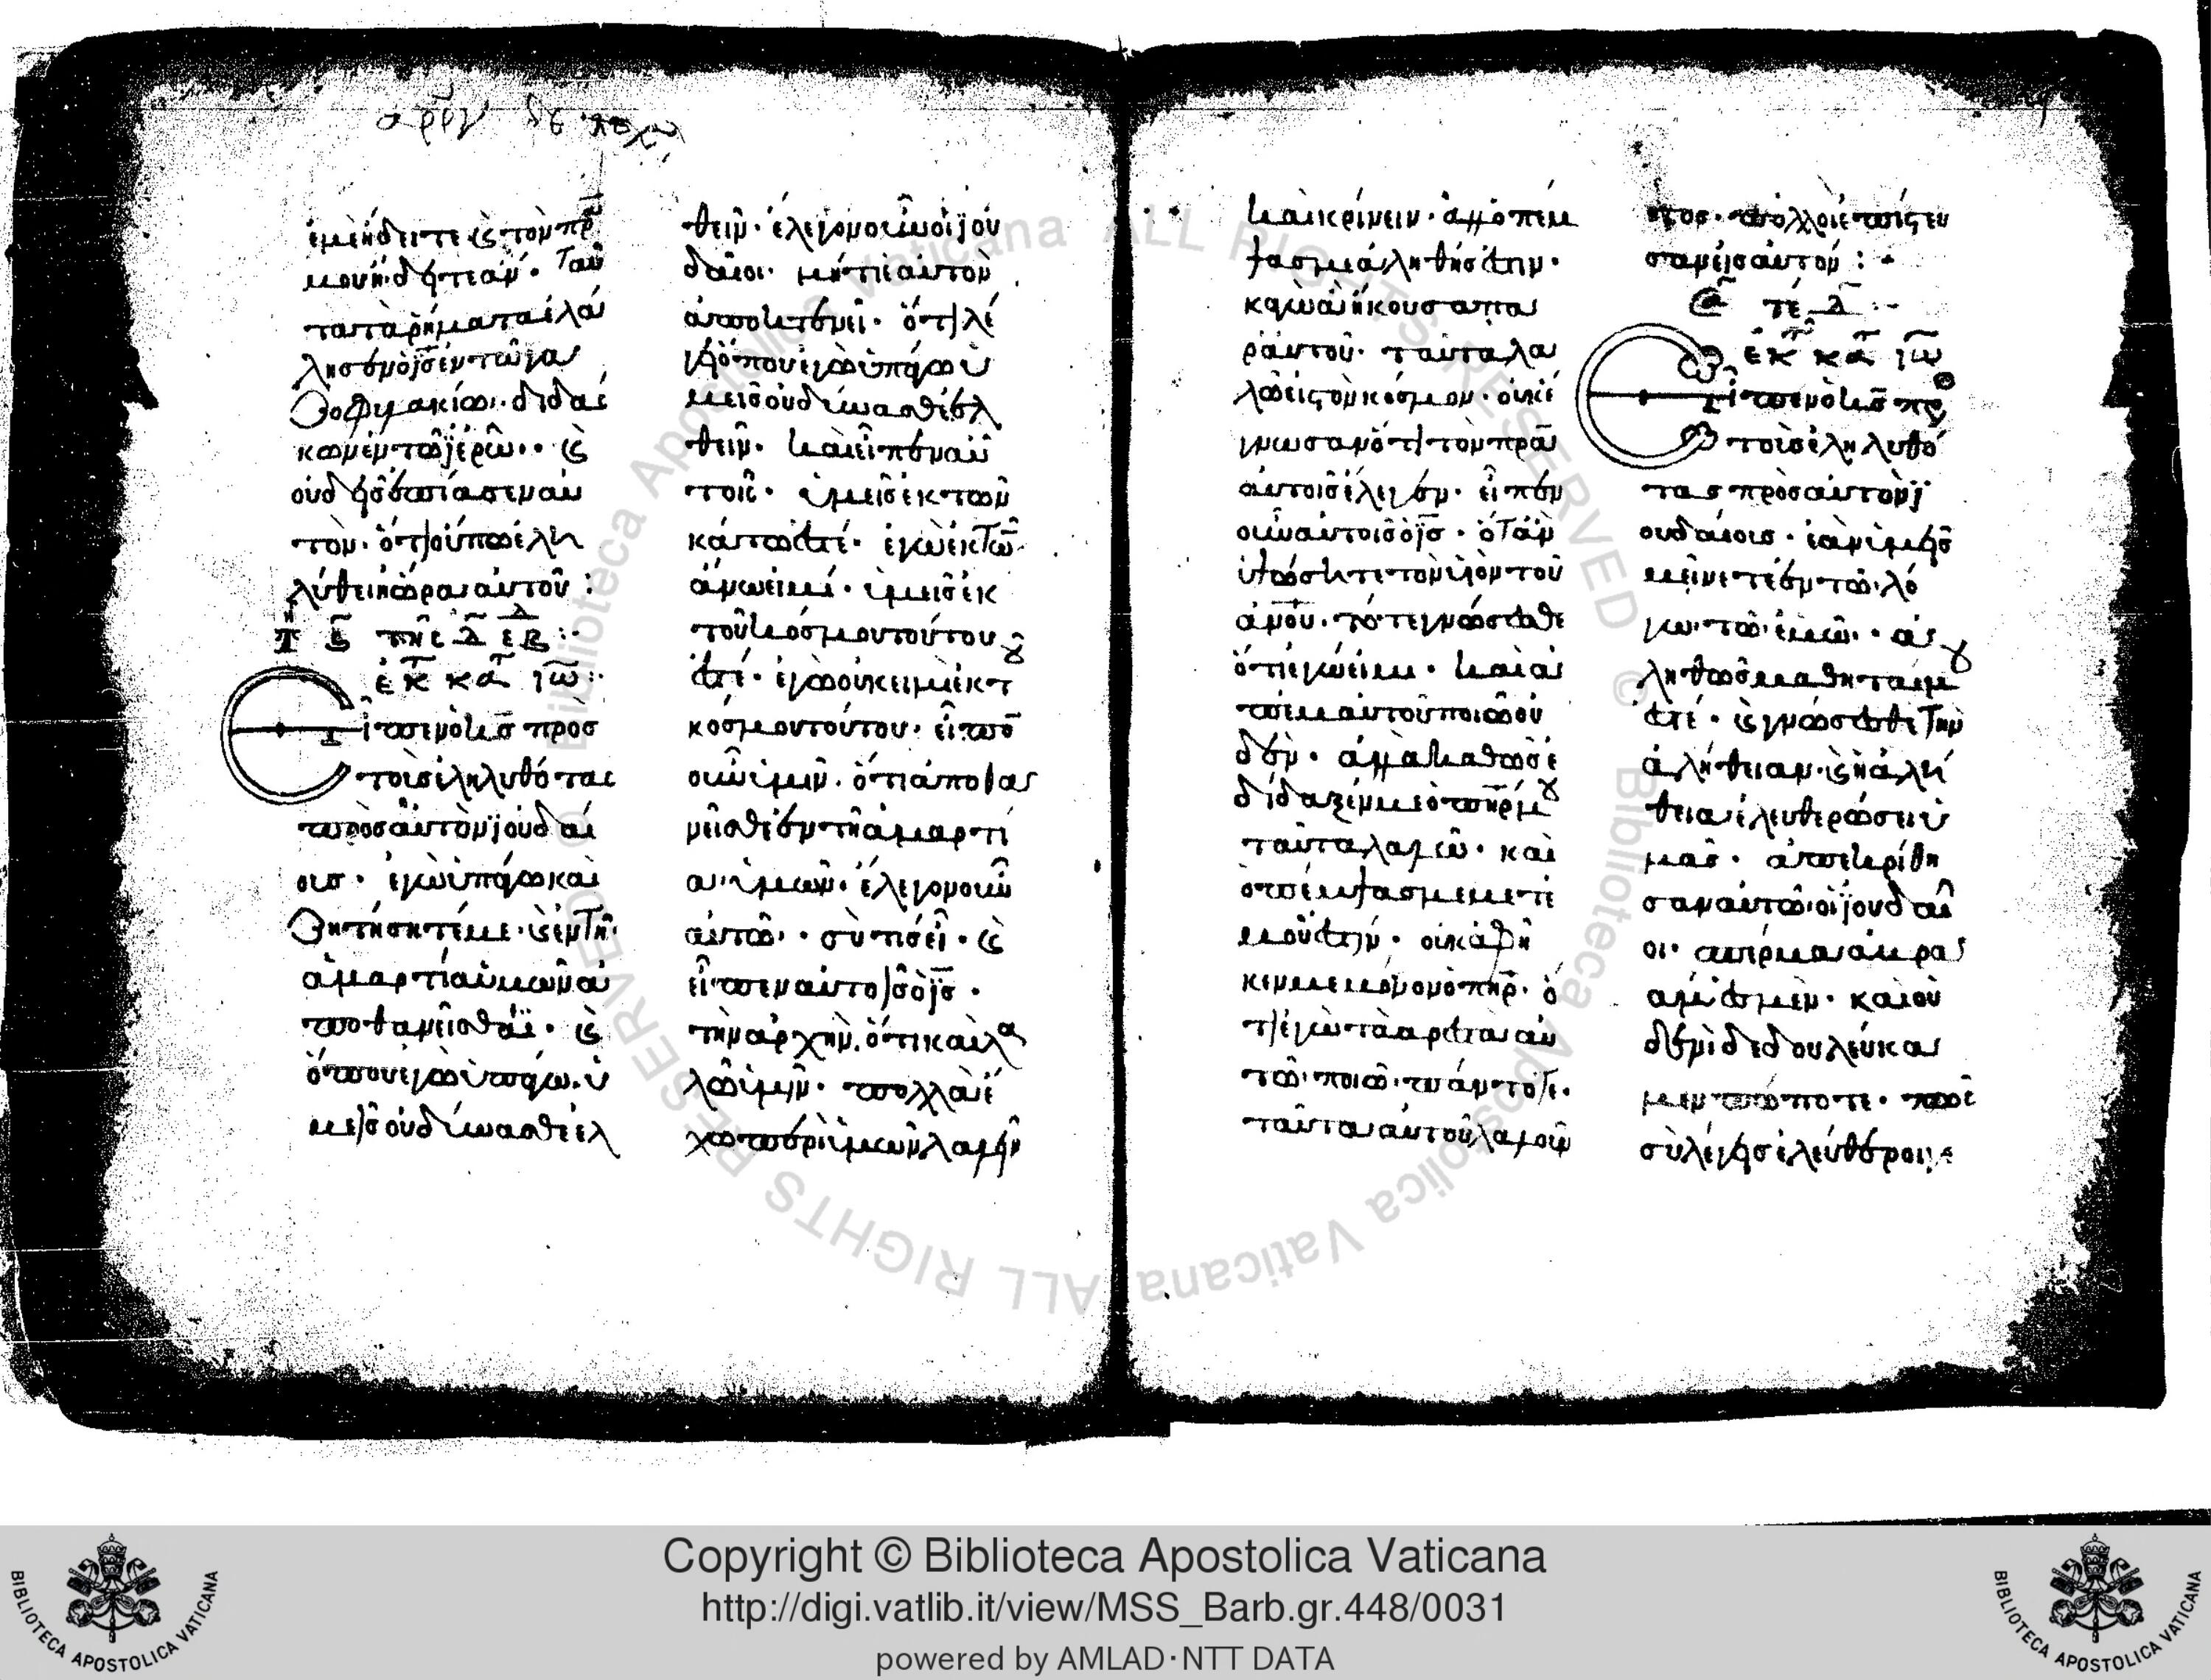 ἐμὲ ἤδειτε κ(αὶ) τὸν πρ̅α
μου ἤδητε ἄν· Ταῦ
τα τὰ ῥήματα ἐλά
λησεν ὁ ι̅ς̅ ἐν τῶ γα
ζοφυλακίω· διδάσ
κων ἐν τῶ ἱερῶ· κ(αὶ)
οὐδεὶς ἐπίασεν αὐ
τὸν· ὅτι οὔπω ἐλη
λύθει ἡ ὥρα αὐτοῦ :
ἐκ τ κα τ ιω
Εἶπεν ὁ κ̅ς̅ πρὸς
τοὺς ἐληλυθότας
πρὸς αὐτὸν ἰουδαί
ους· ἐγὼ ὑπάγω καὶ
ζητήσητέ με· κ(αὶ) ἐν τῆ
ἁμαρτία ὑμῶν ἀ
ποθανεῖσθαϊ· κ(αὶ)
ὅπου ἐγὼ ὑπάγω· ὑ
μεῖς οὐ δύνασθε ἐλ
θεῖν· ἔλεγον οὖν οἱ ἰου
δαῖοι· μήτι ἑαυτὸν
ἀποκτενεῖ· ὅτι λέ
γει ὅπου ἐγὼ ὑπάγω ὑ
μεῖς οὐ δύνασθε ἐλ
θεῖν· καὶ εἶπεν αὐ
τοῖς· ὑμεῖς ἐκ τῶν
κάτω ἐστέ· ἐγὼ ἐκ τῶν
ἄνω εἰμί· ὑμεῖς ἐκ
τοῦ κόσμου τούτου
ἐστέ· ἐγὼ οὐκ εἰμὶ ἐκ τοῦ
κόσμου τούτου· εἶπον
οὖν ὑμῖν· ὅτι ἀποθα
νεῖσθε ἐν τῆ ἁμαρτί
α ὑμῶν· ἔλεγον οὖν
αὐτῶ· σὺ τίς εἶ· κ(αὶ)
εἶπεν αὐτοῖς ὁ ι̅ς̅·
τὴν ἀρχὴν, ὅτι καὶ λα
λῶ ὑμῖν· πολλὰ ἔ
χω περὶ ὑμῶν λαλεῖν
καὶ κρίνειν· ἀλλ' ὁ πέμ
ψας με ἀληθής ἐστιν·
κἀγὼ ἃ ἤκουσα πα
ρ' αὐτοῦ· ταῦτα λα
λῶ εἰς τὸν κόσμον· οὐκ ἔ
γνωσαν ὅτι τὸν πρ̅α
αὐτοῖς ἔλεγεν· εἶπεν
οὖν αὐτοῖς ὁ ι̅ς̅· ὅταν
ὑψώσητε τὸν υἱὸν τοῦ
α̅ν̅ο̅υ̅· τότε γνώσεσθε
ὅτι ἐγώ εἰμι· καὶ ἀ
π' ἐμαυτοῦ ποιῶ οὐ
δέν· ἀλλὰ καθὼς ἐ
δίδαξέν με ὁ π̅η̅ρ̅ μου
ταῦτα λαλῶ· καὶ
ὁ πέμψας με μετ' ἐ
μοῦ ἐστίν· οὐκ ἀφῆ
κεν με μόνον ὁ π̅η̅ρ̅· ὅ
τι ἐγὼ τὰ ἀρεστὰ αὐ
τῶ ποιῶ πάντοτε·
ταῦτα αὐτοῦ λαλοῦν
τος· πολλοὶ ἐπίστευ
σαν εἰς αὐτόν :
ἐκ τ κα τ ιω
Εἶπεν ὁ κ̅ς̅ πρὸς
τοὺς ἐληλυθό
τας πρὸς αὐτὸν ἰ
ουδαίους· ἐὰν ὑμεῖς
μείνητε ἐν τῶ λό
γω τῶ ἐμῶ· ἀ
ληθῶς μαθηταί μου
ἐστέ· κ(αὶ) γνώσεσθε τὴν
ἀλήθειαν· κ(αὶ) ἡ ἀλή
θεια ἐλευθερώσει ὑ
μᾶς· ἀπεκρίθη
σαν αὐτῶ οἱ ἰουδαῖ
οι· σπέρμα ἀβρα
άμ ἐσμέν· καὶ οὐ
δενὶ δεδουλεύκα
μεν πώποτε· πῶς
σὺ λέγεις ἐλεύθεροι γε
Copyright © Biblioteca Apostolica Vaticana
http://digi.vatlib.it/view/MSS_Barb.gr.448/0031
powered by AMLAD·NTT DATA
BIBLIOTECA APOSTOLICA VATICANA
BIBLIOTECA APOSTOLICA VATICANA